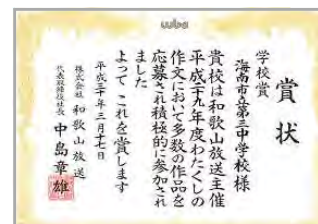 wbs
賞状
学校賞
海南市立第三中学校様
貴校は和歌山放送主催
平成二十九年度わたくしの
作文において多数の作品を
応募され積極的に参加され
ました
よって これを賞します
平成三十年三月十七日
株式会社 和歌山放送
代表取締役社長 中島章雄